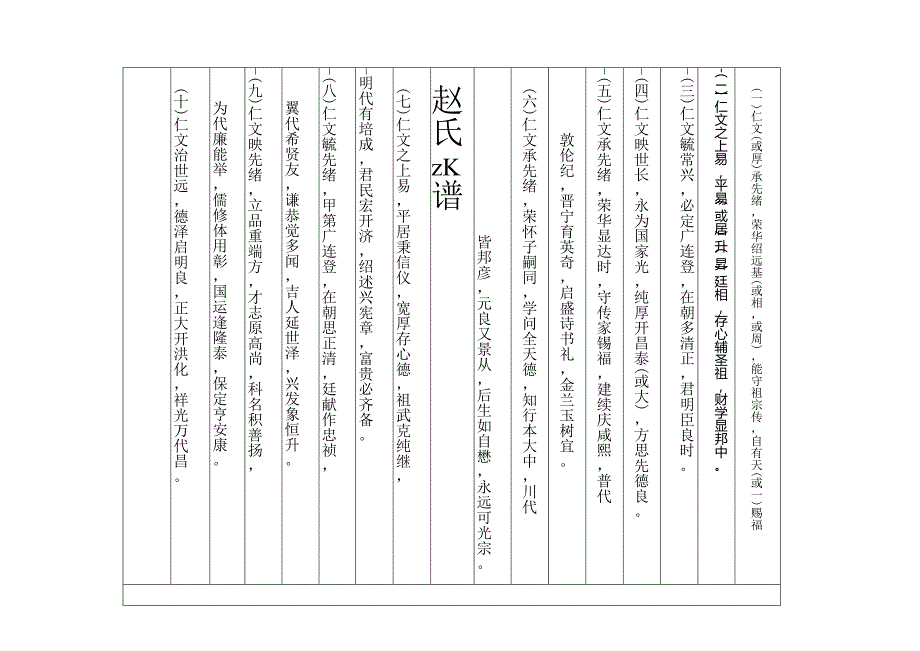 (一)仁文(或厚)承先绪,荣华绍远基(或相,或周),能守祖宗传,自有天(或一)赐福
(二)仁文之上易,平易,或居,升,昇,廷相,存心辅圣祖,财学显邦中。
(三)仁文毓常兴,必定广连登,在朝多清正,君明臣良时。
(四)仁文映世长,永为国家光,纯厚开昌泰(或大),方思先德良。
(五)仁文承先绪,荣华显达时,守传家锡福,建续庆咸熙,普代
敦伦纪,晋宁育英奇,启盛诗书礼,金兰玉树宜。
(六)仁文承先绪,荣怀子嗣同,学问全天德,知行本大中,川代
皆邦彦,元良又景从,后生如自懋,永远可光宗。
赵氏zK谱
(七)仁文之上易,平居秉信仪,宽厚存心德,祖武克纯继,
明代有培成,君民宏开济,绍述兴宪章,富贵必齐备。
(八)仁文毓先绪,甲第广连登,在朝思正清,廷献作忠祯,
翼代希贤友,谦恭觉多闻,吉人延世泽,兴发象恒升。
(九)仁文映先绪,立品重端方,才志原高尚,科名积善扬,
为代廉能举,儒修体用彰,国运逢隆泰,保定亨安康。
(十)仁文治世远,德泽启明良,正大开洪化,祥光万代昌。